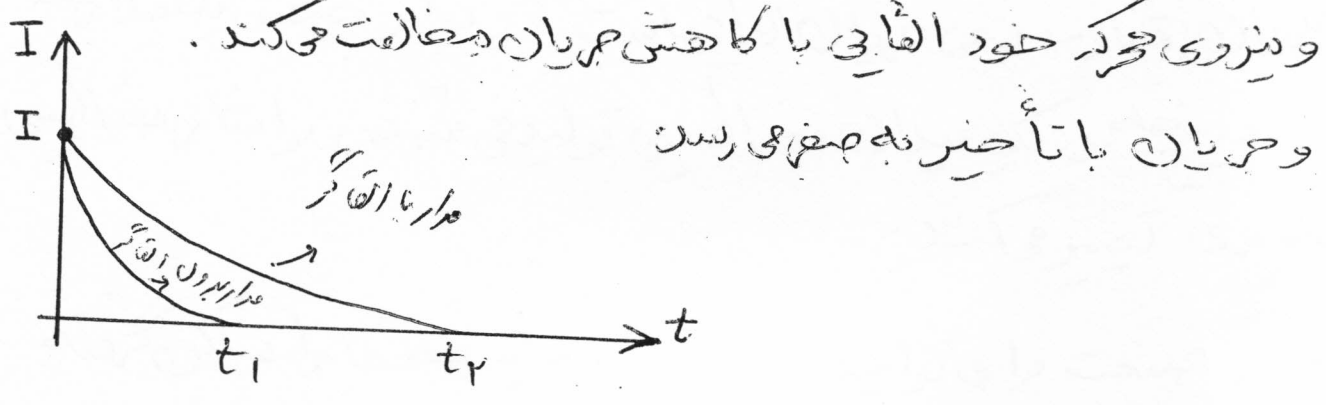 و نیروی محرکه خود القایی با کاهش جریان مخالفت می‌کند .
و جریان با تأخیر به صفر می‌رسد
I
I
مدار با القاگر
مدار بدون القاگر
t₁
t₂
t